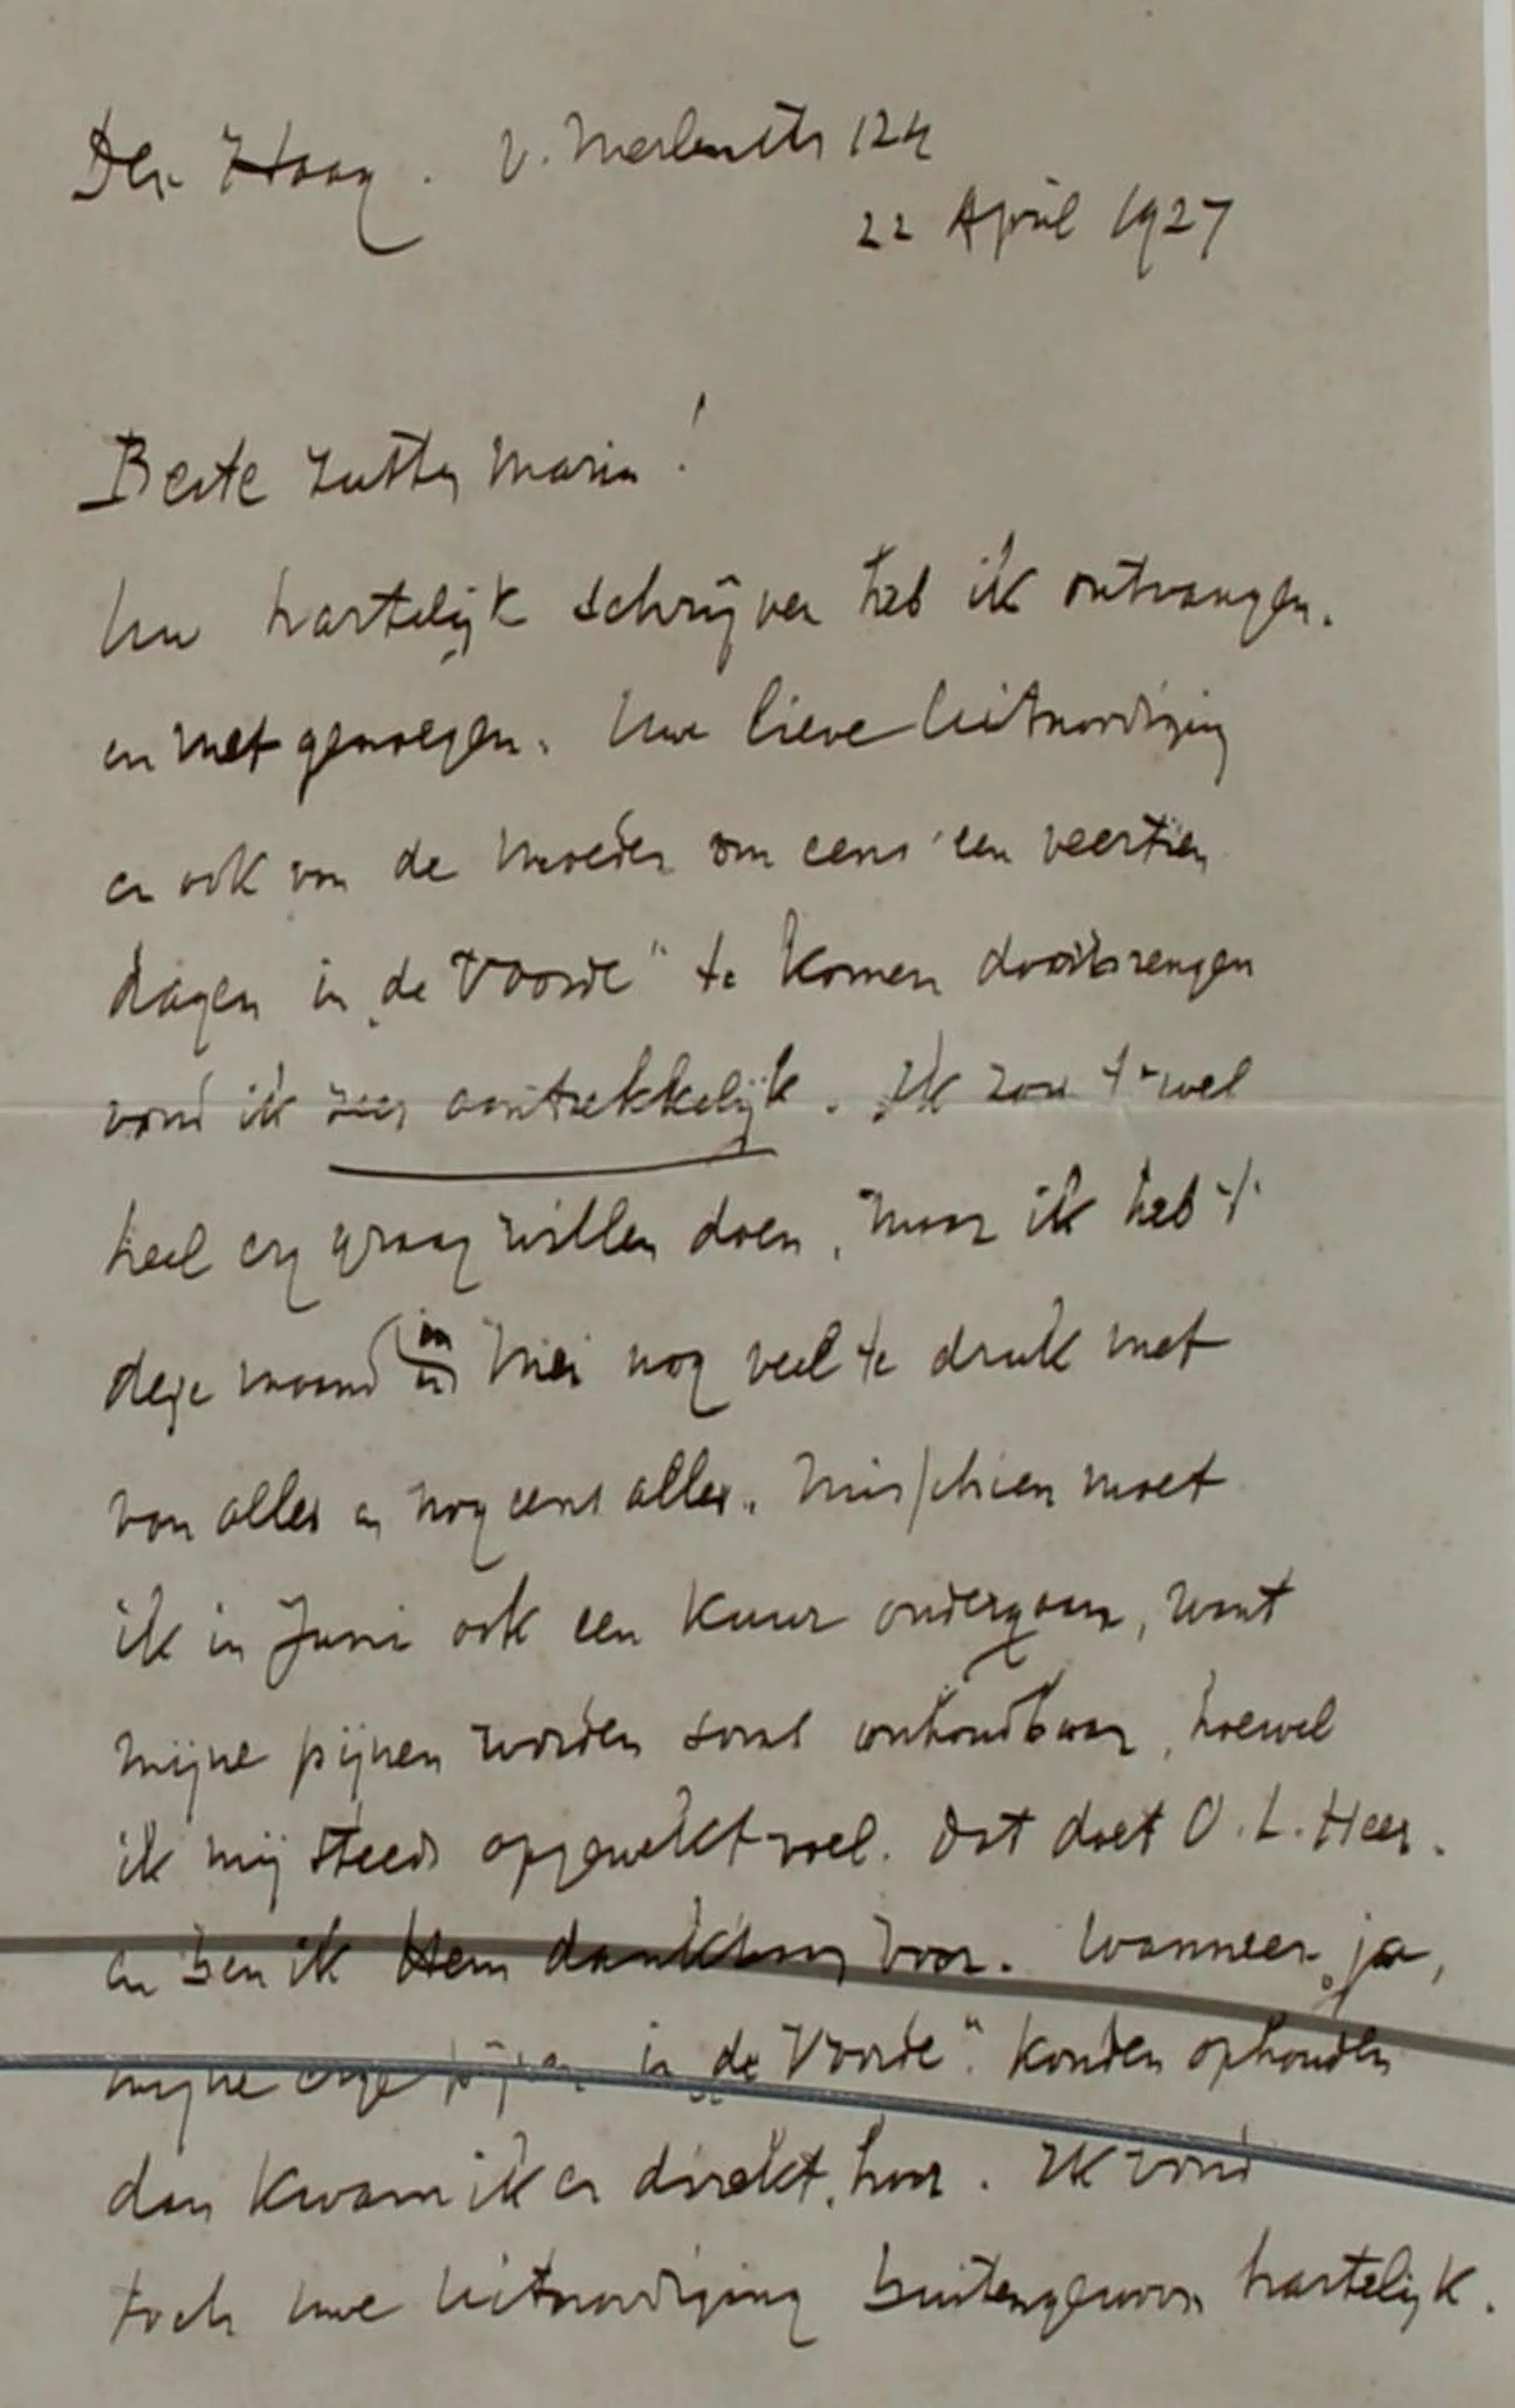 Den Haag. v. Merlenstr 124
22 April 1927
Beste zuster Maria!
Uw hartelijk schrijven heb ik ontvangen.
en met genoegen. Uwe lieve Uitnoodiging
en ook van de Moeder om eens een veertien
dagen in „de Voorde" te komen doorbrengen
vond ik zeer aantrekkelijk. Ik zou 't wel
heel erg graag willen doen, maar ik heb 't
deze maand en in Mei nog veel te druk met
van alles en nog eens alles. Misschien moet
ik in Juni ook een Kuur ondergaan, want
mijne pijnen worden soms onhoudbaar, hoewel
ik mij steeds opgewekt voel. Dat doet O. L. Heer.
en ben ik Hem dankbaar voor. Wanneer, ja,
mijne erge pijnen in „de Voorde" konden ophouden
dan kwam ik er direkt, hoor. Ik vind
toch uwe Uitnoodiging buitengewoon hartelijk.